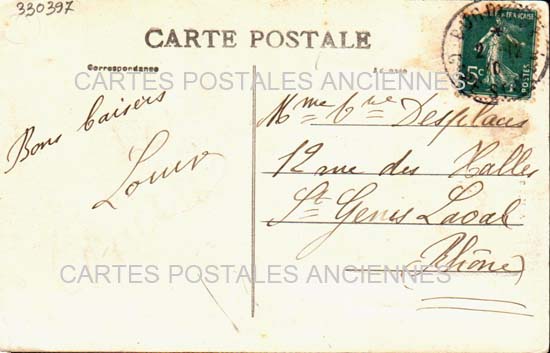 330397
CARTE POSTALE
Correspondance
CARTES POSTALES ANCIENNES
Bons baisers
Louise
Mme Vve Desplaces
12 rue des Halles
St Genis Laval
(Rhône)
CARTES POSTALES ANCIENNES
5c
POSTES